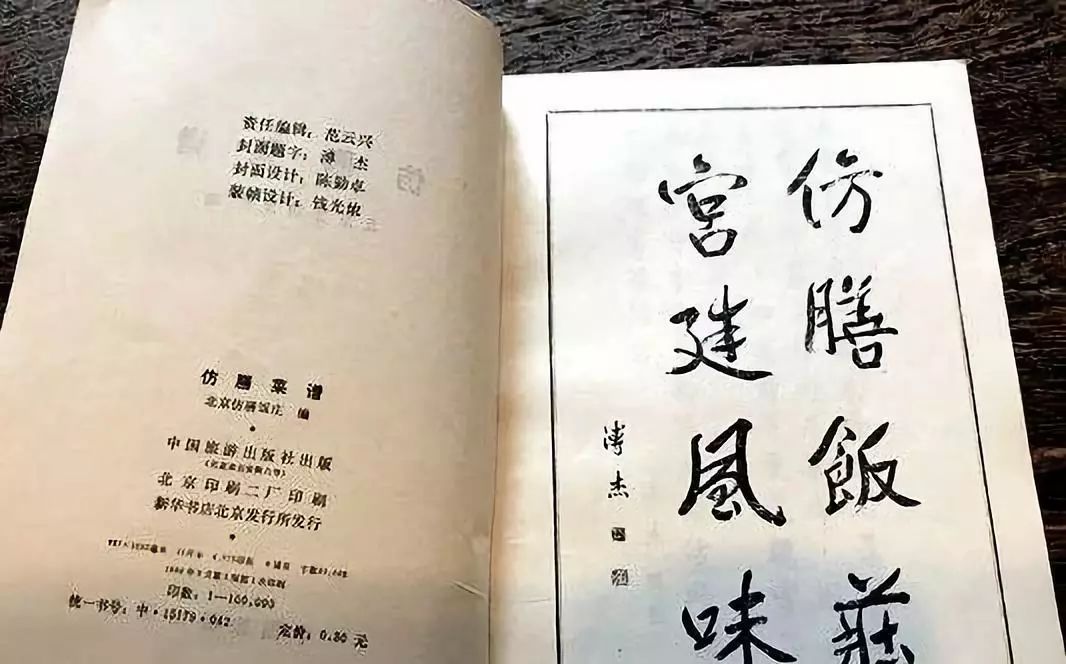 责任编辑：范云兴
封面题字：溥 杰
封面设计：陈勤卓
装帧设计：钱光依
仿膳菜谱
北京仿膳饭庄 编
中国旅游出版社出版
北京印刷二厂印刷
新华书店北京发行所发行
印数：1—100,000
统一书号：中·15179·042 定价：0.80 元
仿膳飯莊
宮廷風味
溥杰